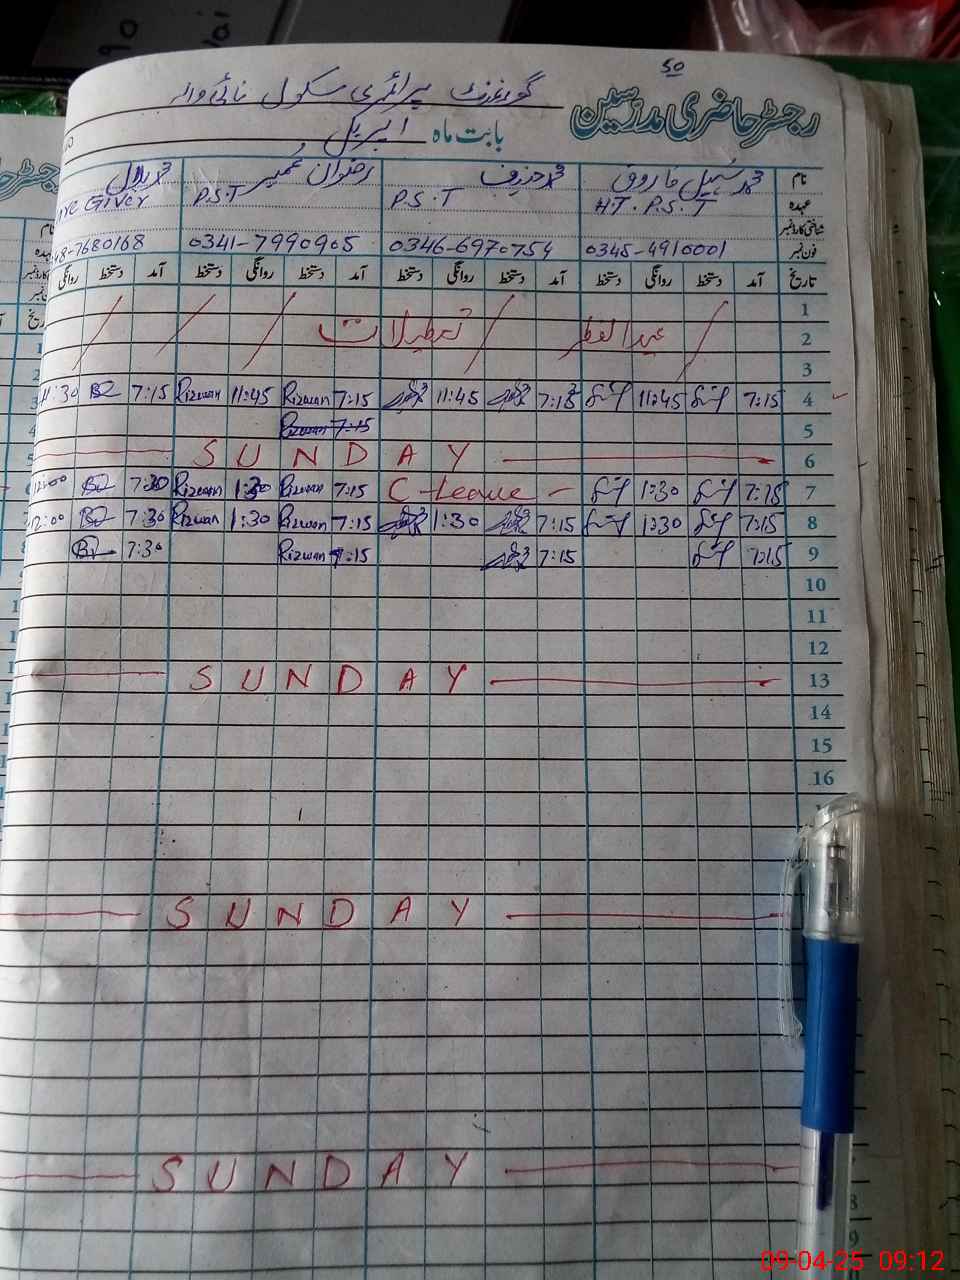 50
گورنمنٹ پرائمری سکول نائی والہ
رجسٹر حاضری مدرسین
بابت ماہ اپریل
نام محمد سہیل فاروق محمد حذیف رضوان عمیر محمد بلال
عہدہ H.T. P.S.T P.S.T P.S.T Giver
شناختی کارڈ نمبر
فون نمبر 0345-4910001 0346-6970754 0341-7990905 48-7680168
تاریخ آمد دستخط روانگی دستخط آمد دستخط روانگی دستخط آمد دستخط روانگی دستخط آمد دستخط روانگی
1
2 عید الفطر تعطیلات
3
4 7:15 11:45 7:15 11:45 7:15 Rizwan 11:45 Rizwan 7:15 11:30
5 7:15 Rizwan
6 SUNDAY
7 7:15 1:30 C-Leave 7:15 Rizwan 1:30 Rizwan 7:30 12:00
8 7:15 1:30 7:15 1:30 7:15 Rizwan 1:30 Rizwan 7:30 12:00
9 7:15 7:15 7:15 Rizwan 7:30
10
11
12
13 SUNDAY
14
15
16
SUNDAY
SUNDAY
09-04-25 09:12